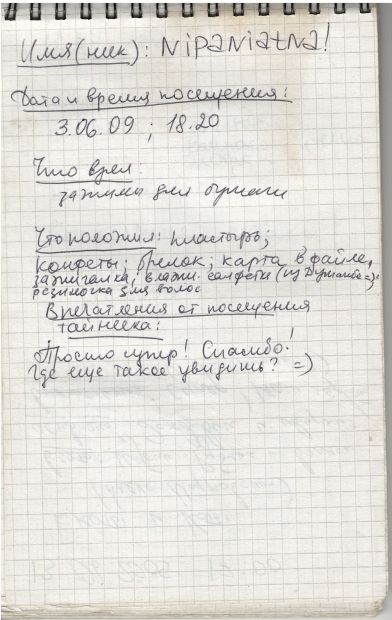 Имя(ник): NipaNiatNa!
Дата и время посещения:
3.06.09 ; 18.20
Что взял:
зажимы для бумаги
Что положил: пластырь;
конфеты; брелок; карта в файле,
зажигалка, влажн. салфетки (из Душанбе =);
резиночка для волос
Впечатления от посещения
тайника:
Просто супер! Спасибо!
Где еще такое увидишь? =)